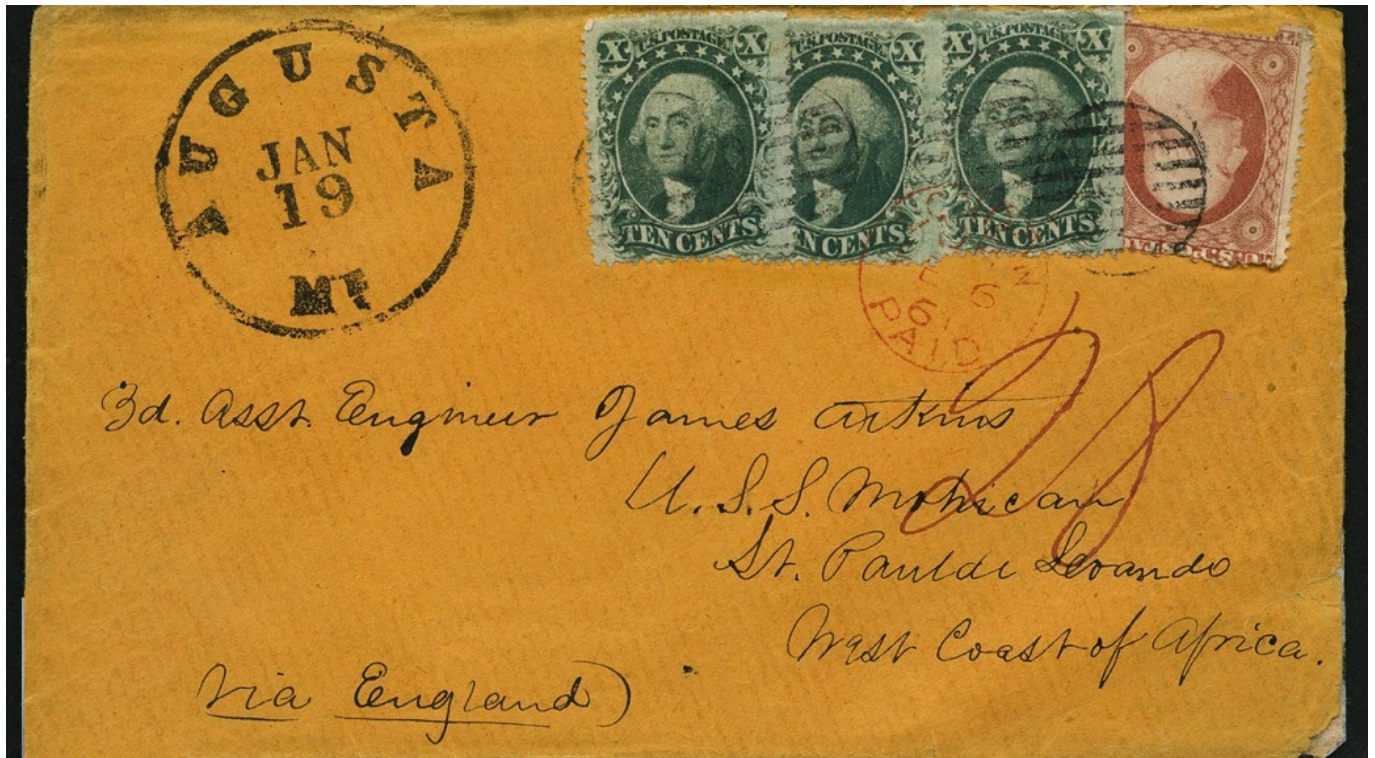 AUGUSTA
JAN
19
Me
X U.S. POSTAGE X
TEN CENTS
U.S. POSTAGE X
N CENTS
X U.S. POSTAGE X
TEN CENTS
6
61
PAID
28
3d. Asst. Engineer James Atkins
U.S.S. Mohican
St. Paulde Loando
West Coast of Africa.
Via England)